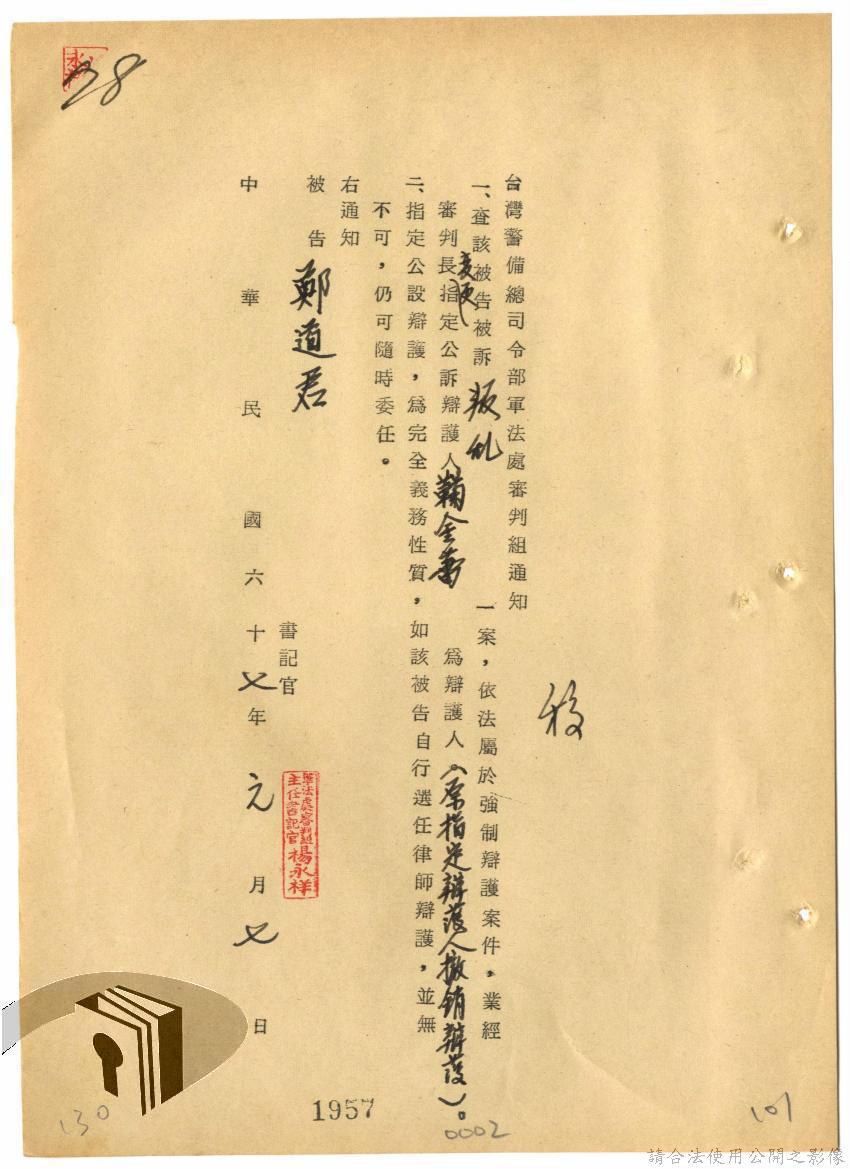 28
台灣警備總司令部軍法處審判組通知
移
一、查該被告被訴叛亂一案，依法屬於強制辯護案件，業經
審判長變更指定公訴辯護人鞠金蕾為辯護人。（原指定辯護人撤銷辯護）。
二、指定公設辯護，為完全義務性質，如該被告自行選任律師辯護，並無
不可，仍可隨時委任。
右通知
被告鄭道君
書記官
軍法處審判組
主任書記官楊永祥
中華民國六十七年元月七日
130
1957
0002
101
請合法使用公開之影像